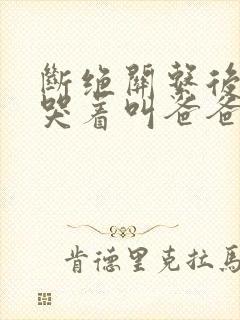 斷绝關繫後
哭着叫爸爸
肯德里克拉馬